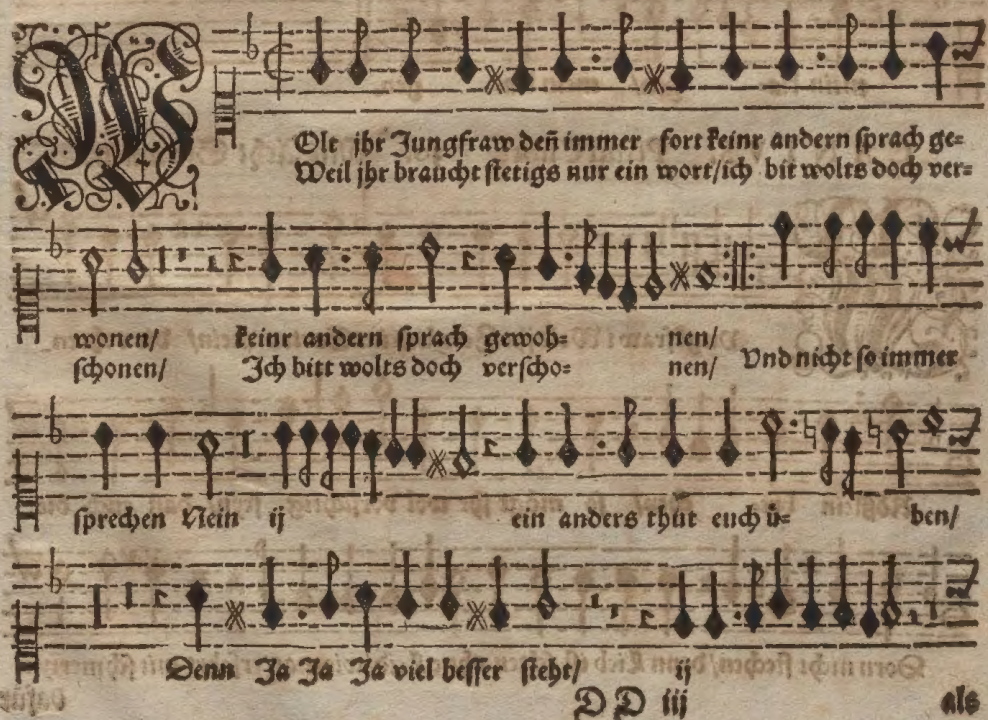 WOlt jhr Jungfraw deñ immer fort keinr andern sprach ge=
Weil jhr braucht stetigs nur ein wort/ich bit wolts doch ver=
wonen/ keinr andern sprach gewoh= nen/
schonen/ Ich bitt wolts doch verscho= nen/ Vnd nicht so immer
sprechen Nein ij ein anders thut euch ü= ben/
Denn Ja Ja Ja viel besser steht/ ij
D D iij als